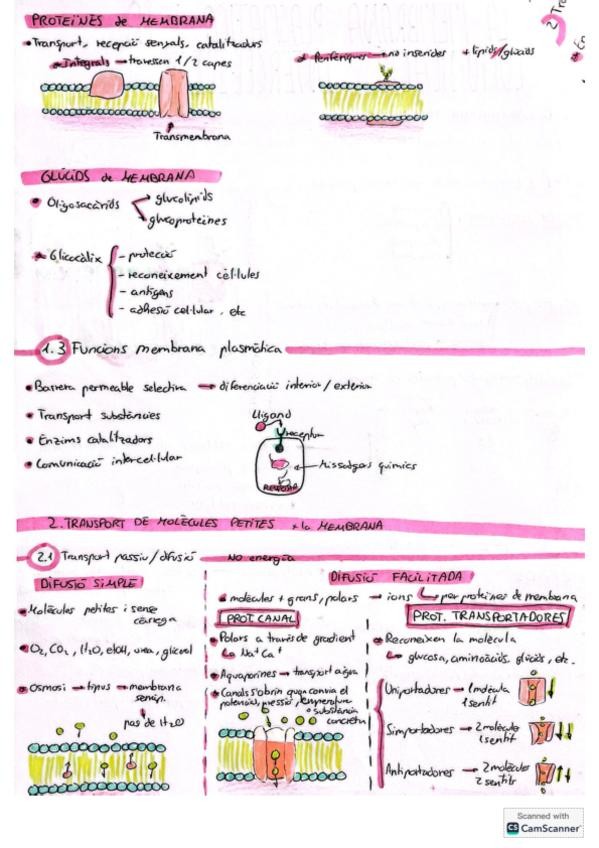 PROTEÏNES de MEMBRANA
Transport, recepció senyals, catalitzadors
Integrals → travessen 1/2 capes
Perifèriques → no inserides + lípids/glúcids
Transmembrana
GLÚCIDS de MEMBRANA
Oligosacàrids
glucolípids
glucoproteïnes
Glicocàlix
- protecció
- reconeixement cèl·lules
- antígens
- adhesió cel·lular, etc
1.3 Funcions membrana plasmàtica
Barrera permeable selectiva → diferenciació interior/exterior
Transport substàncies
Enzims catalitzadors
Comunicació intercel·lular
Lligand
receptor
Missatgers químics
RESPOSTA
2. TRANSPORT DE MOLÈCULES PETITES x la MEMBRANA
2.1 Transport passiu/difusió No energia
DIFUSIÓ SIMPLE
Molècules petites i sense càrrega
O2, CO2, H2O, etOH, urea, glicerol
Osmosi → tipus → membrana semip.
pas de H2O
DIFUSIÓ FACILITADA
molècules + grans, polars → ions
per proteïnes de membrana
PROT. CANAL
Polars a través de gradient
Na+ Ca+
Aquaporines → transport aigua
Canals s'obrin quan canvia el
potencial, pressió, temperatura
o substància
concreta
PROT. TRANSPORTADORES
Reconeixen la molècula
glucosa, aminoàcids, glúcids, etc.
Uniportadores → 1 molècula
1 sentit
Simportadores → 2 molècules
1 sentit
Antiportadores → 2 molècules
2 sentits
Scanned with
CS CamScanner